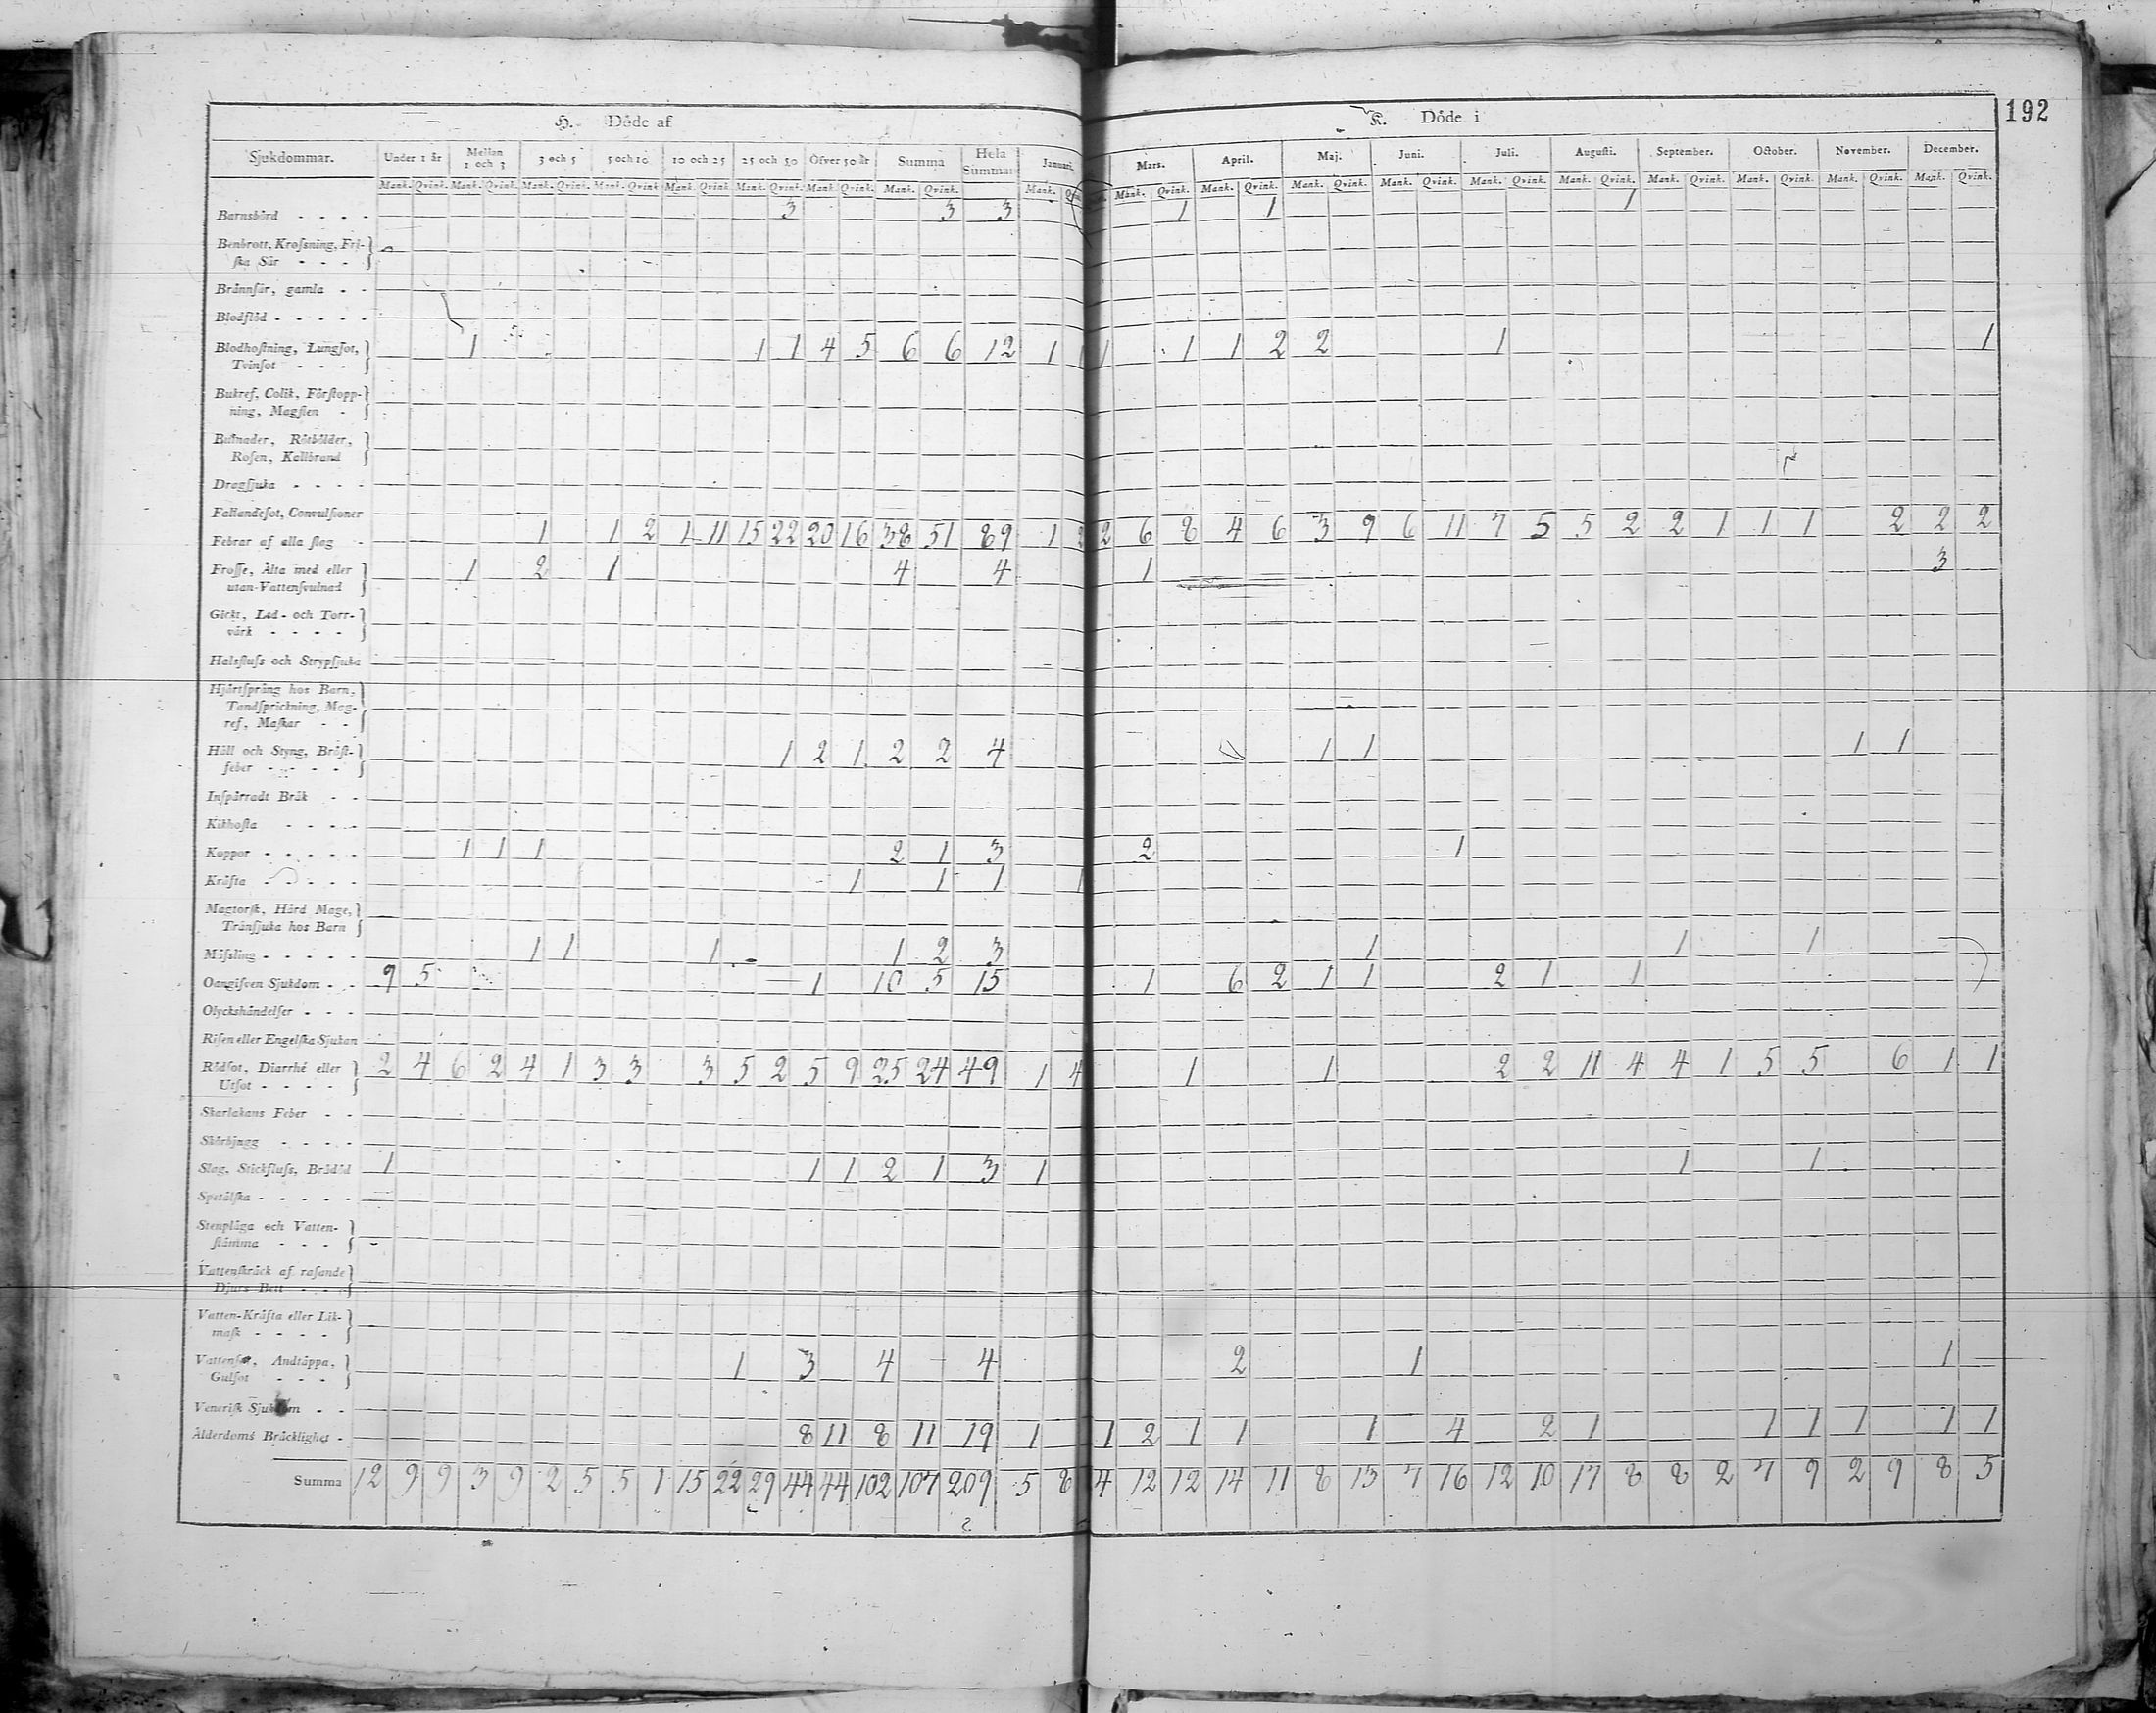 192
H. Döde af K. Döde i
Sjukdommar. Under 1 år Mellan 1 och 3 3 och 5 5 och 10 10 och 25 25 och 50 Öfver 50 år Summa Hela Summan Januari. Mars. April. Maj. Juni. Juli. Augusti. September. October. November. December.
Mank. Qvink. Mank. Qvink. Mank. Qvink. Mank. Qvink. Mank. Qvink. Mank. Qvink. Mank. Qvink. Mank. Qvink. Mank. Mank. Qvink. Mank. Qvink. Mank. Qvink. Mank. Qvink. Mank. Qvink. Mank. Qvink. Mank. Qvink. Mank. Qvink. Mank. Qvink. Mank. Qvink.
Barnsbörd - - - - 3 3 3 1 1 1
Benbrott, Kroſsning, Fri-
ſka Sår - - -
Brännſår, gamla - -
Blodflöd - - - - -
Blodhoſtning, Lungſot, 1 1 1 4 5 6 6 12 1 1 1 1 1 2 2 1 1
Tvinſot - - -
Bukref, Colik, Förſtopp-
ning, Magſlen -
Bulnader, Rötbölder,
Roſen, Kallbrand
Dragſjuka - - - -
Fallandeſot, Convulſioner
Febrar af alla ſlag - 1 1 2 1 11 15 22 20 16 38 51 89 1 2 2 6 8 4 6 3 9 6 11 7 5 5 2 2 1 1 1 2 2 2
Froſſe, Älta med eller 1 2 1 4 4 1 3
utan Vattenſvulnad
Gickt, Led- och Torr-
värk - - - -
Halsfluſs och Strypſjuka
Hjärtſpräng hos Barn,
Tandſprickning, Mag-
ref, Maſkar - -
Håll och Styng, Bröſt- 1 2 1 2 2 4 1 1 1 1
feber - - - - -
Inſpärradt Bråk - -
Kikhoſta - - - -
Koppor - - - - - 1 1 1 2 1 3 2 1
Kräfta - - - - - 1 1 1 1
Magtorſk, Hård Mage,
Tränſjuka hos Barn
Mäſsling - - - - - 1 1 1 1 2 3 1 1 1
Oangifven Sjukdom - - 9 5 1 10 5 15 1 6 2 1 1 2 1 1
Olyckshändelſer - - -
Riſen eller Engelſka Sjukan
Rödſot, Diarrhé eller 2 4 6 2 4 1 3 3 3 5 2 5 9 25 24 49 1 4 1 1 2 2 11 4 4 1 5 5 6 1 1
Utſot - - - -
Skarlakans Feber - -
Skörbjugg - - - -
Slag, Stickfluſs, Brådöd 1 1 1 2 1 3 1 1 1
Spetälſka - - - - -
Stenplåga och Vatten-
ſtämma - - - -
Vattenſkräck af raſande
Djurs Bett - - -
Vatten-Kräfta eller Lik-
maſk - - - -
Vattenſot, Andtäppa, 1 3 4 4 2 1 1
Gulſot - - -
Veneriſk Sjukdom - -
Ålderdoms Bräcklighet - 8 11 8 11 19 1 1 2 1 1 1 4 2 1 1 1 1 1 1
Summa 12 9 9 3 9 2 5 5 1 15 22 29 44 44 102 107 209 5 8 4 12 12 14 11 8 13 7 16 12 10 17 8 8 2 7 9 2 9 8 5